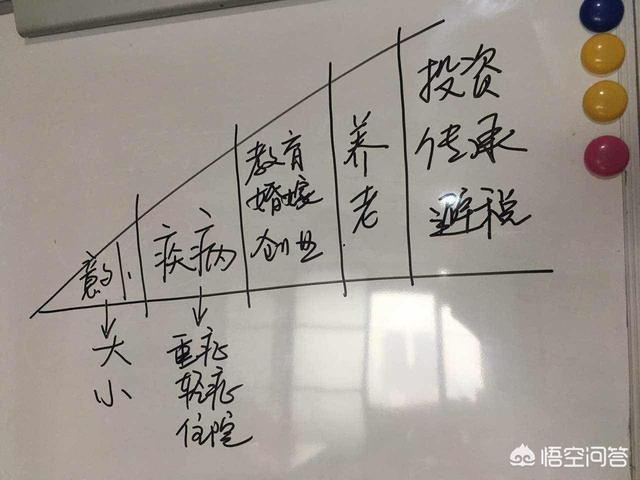 意外
大
小
疾病
重症
轻症
住院
教育
婚嫁
创业
养老
投资
传承
避税
悟空问答